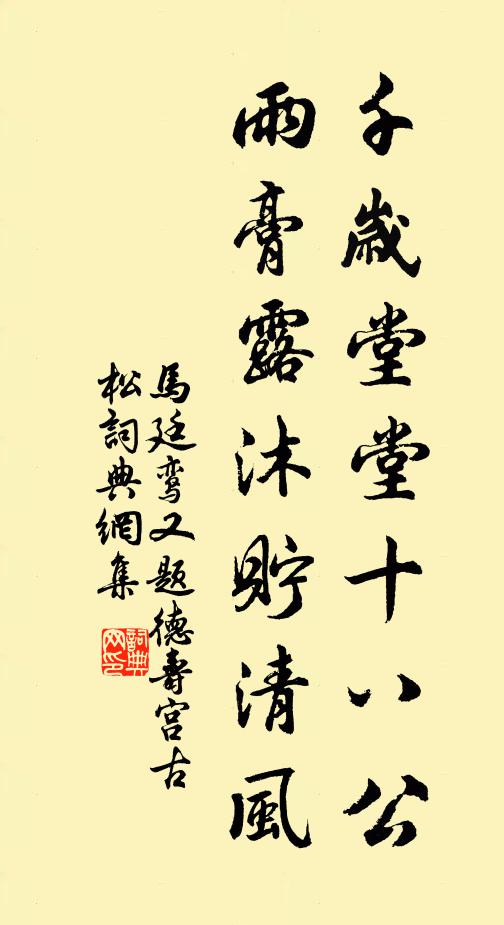 千歲堂堂十八公
雨膏露沐貯清風
馬廷鸾又题德壽宫古
松詞典網集
詞典
网印